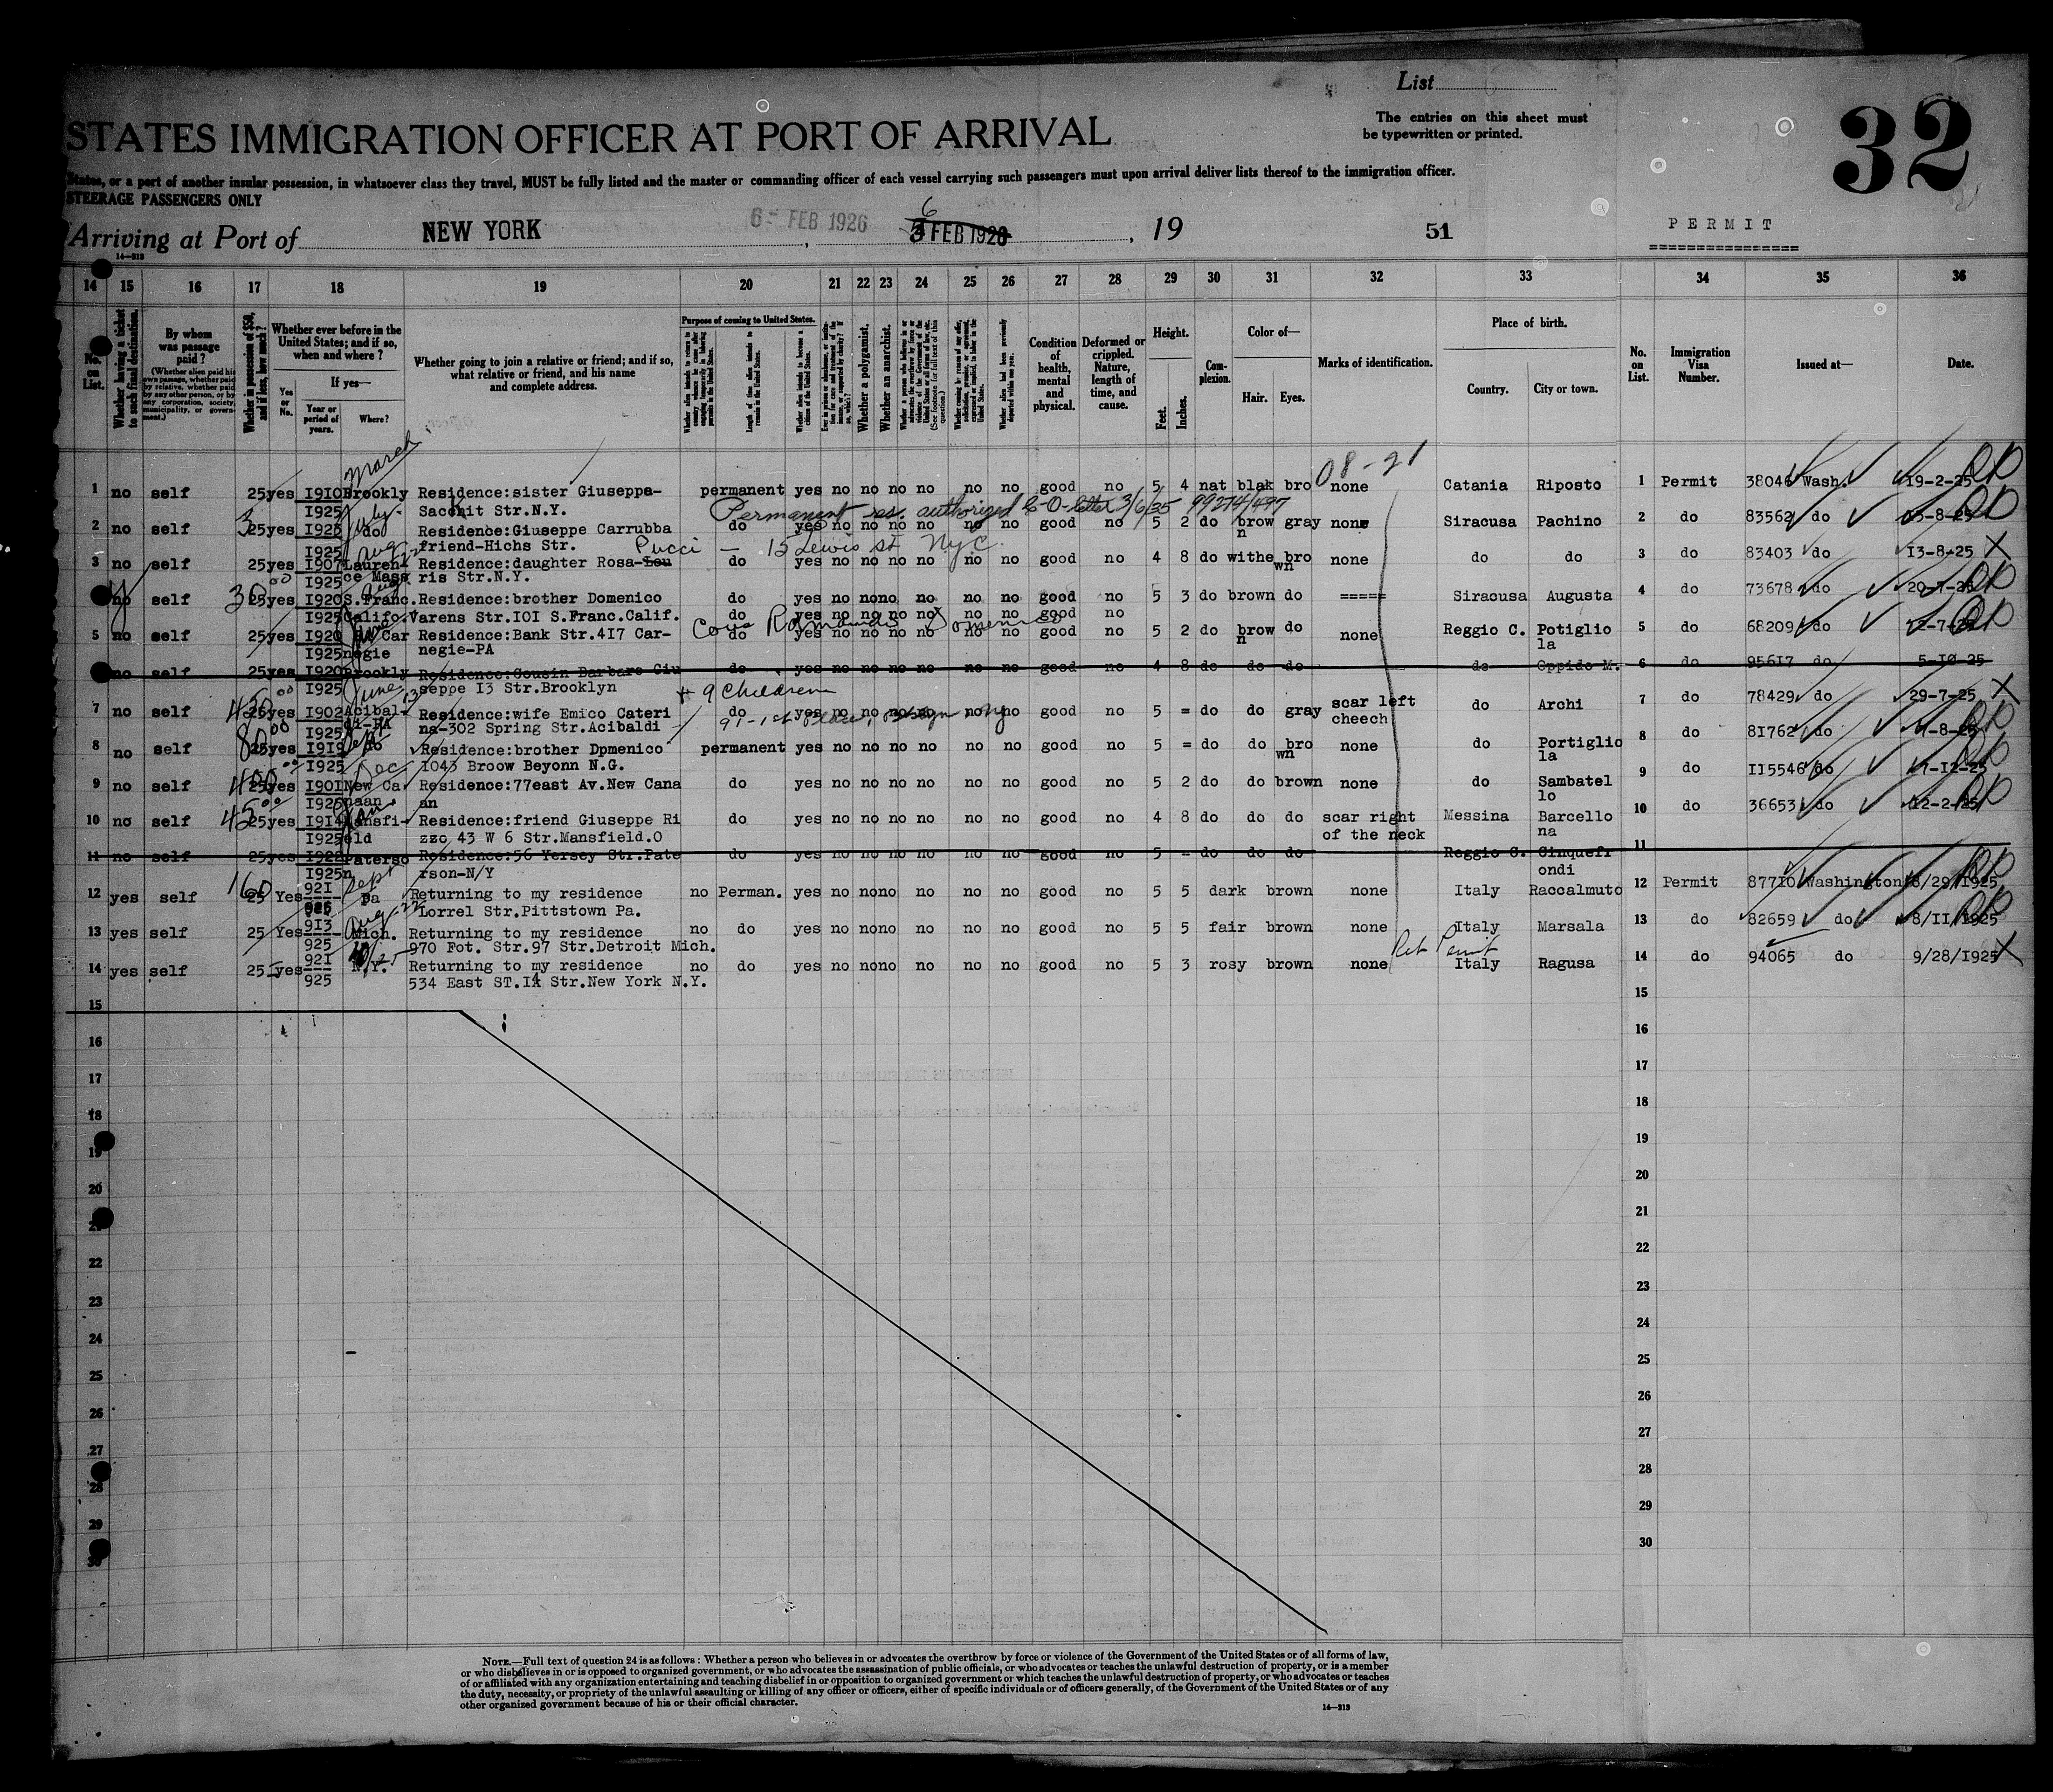 List
The entries on this sheet must
be typewritten or printed.
32
STATES IMMIGRATION OFFICER AT PORT OF ARRIVAL
States, or a port of another insular possession, in whatsoever class they travel, MUST be fully listed and the master or commanding officer of each vessel carrying such passengers must upon arrival deliver lists thereof to the immigration officer.
STEERAGE PASSENGERS ONLY
Arriving at Port of NEW YORK 6- FEB 1926 , 6 FEB 1926 , 19 51 PERMIT
14—313
14 15 16 17 18 19 20 21 22 23 24 25 26 27 28 29 30 31 32 33 34 35 36
No. on List.
Whether having a ticket to such final destination.
By whom was passage paid?
(Whether alien paid his own passage, whether paid by relative, whether paid by any other person, or by any corporation, society, municipality, or government.)
Whether in possession of $50, and if less, how much?
Whether ever before in the United States; and if so, when and where?
Yes or No.
If yes—
Year or period of years.
Where?
Whether going to join a relative or friend; and if so, what relative or friend, and his name and complete address.
Purpose of coming to United States.
Whether a polygamist.
Whether an anarchist.
Condition of health, mental and physical.
Deformed or crippled. Nature, length of time, and cause.
Height.
Feet. Inches.
Complexion.
Color of—
Hair. Eyes.
Marks of identification.
Place of birth.
Country. City or town.
No. on List.
Immigration Visa Number.
Issued at—
Date.
March
08-21
1 no self 25 yes I910 Brookly Residence:sister Giuseppa- permanent yes no no no no no no good no 5 4 nat blak bro none Catania Riposto 1 Permit 38046 Wash. I9-2-25
I925 Sacchit Str.N.Y. Permanent res. authorized C-O-letter 3/6/35 99274/497
2 no self 25 yes I923 do Residence:Giuseppe Carrubba do yes no no no no no no good no 5 2 do brow gray none Siracusa Pachino 2 do 83562 do
I925 friend-Hichs Str. Pucci - 15 Lewis st NYC n
3 no self 25 yes I907 Lauren- Residence:daughter Rosa-Lou do yes no no no no no no good no 4 8 do withe bro none do do 3 do 83403 do I3-8-25 X
I925 ce Mass ris Str.N.Y. wn
no self 30 25 yes I920 S.Franc. Residence:brother Domenico do yes no no no no no no good no 5 3 do brown do ===== Siracusa Augusta 4 do 73678 do 20-7-25
I925 Califo. Varens Str.IOI S.Franc.Calif. do yes no no no no no no good no
5 no self 25 yes I920 Car Residence:Bank Str.4I7 Car- do 5 2 do brow do none Reggio C. Potiglio 5 do 68209 do
I925 negie negie-PA Cous Domenico n la
no self 25 yes I920 Brookly Residence:Cousin Barbaro Giu do yes no no no no no no good no 4 8 do do do do Oppido M. 6 do 956I7 do 5-I0-25
I925 June seppe I3 Str.Brooklyn + 9 Children
7 no self 25 yes I902 Acibal- Residence:wife Emico Cateri do yes no no no no no no good no 5 = do do gray scar left do Archi 7 do 78429 do 29-7-25 X
I925 di-PA na-302 Spring Str.Acibaldi cheech
8 no self 80 25 yes I9I9 do Residence:brother Dpmenico permanent yes no no no no no no good no 5 = do do bro none do Portiglio 8 do 8I762 do
I925 Dec I043 Broow Beyonn N.G. wn la
9 no self 400 25 yes I90I New Ca Residence:77east Av.New Cana do yes no no no no no no good no 5 2 do do brown none do Sambatel 9 do II5546 do I7-I2-25
I925 naan an lo
10 no self 45 25 yes I9I4 Mansfi- Residence:friend Giuseppe Ri do yes no no no no no no good no 4 8 do do do scar right Messina Barcello 10 do 36653 do I2-2-25
I925 eld zzo 43 W 6 Str.Mansfield.O of the neck na
11 no self 25 yes I922 Paterso Residence:56 Yersey Str.Pate do yes no no no no no no good no 5 - do do do Reggio C. Cinquefr 11
I925 n rson-N/Y ondi
12 yes self 160 25 Yes 92I Pa Returning to my residence no Perman. yes no no no no no no good no 5 5 dark brown none Italy Raccalmuto 12 Permit 877I0 Washington 8/29/I925
Lorrel Str.Pittstown Pa.
13 yes self 25 Yes 9I3 Mich. Returning to my residence no do yes no no no no no no good no 5 5 fair brown none Italy Marsala 13 do 82659 do 8/II/I925
925 970 Fot. Str.97 Str.Detroit Mich. Ret Permit
14 yes self 25 yes 92I N.Y. Returning to my residence no do yes no no no no no no good no 5 3 rosy brown none Italy Ragusa 14 do 94065 do 9/28/I925 X
925 534 East ST.I4 Str.New York N.Y.
15 15
16 16
17 17
18 18
19 19
20 20
21 21
22 22
23 23
24 24
25 25
26 26
27 27
28 28
29 29
30 30
NOTE.—Full text of question 24 is as follows: Whether a person who believes in or advocates the overthrow by force or violence of the Government of the United States or of all forms of law,
or who disbelieves in or is opposed to organized government, or who advocates the assassination of public officials, or who advocates or teaches the unlawful destruction of property, or is a member
of or affiliated with any organization entertaining and teaching disbelief in or opposition to organized government or which teaches the unlawful destruction of property, or who advocates or teaches
the duty, necessity, or propriety of the unlawful assaulting or killing of any officer or officers, either of specific individuals or of officers generally, of the Government of the United States or of any
other organized government because of his or their official character.
14—313